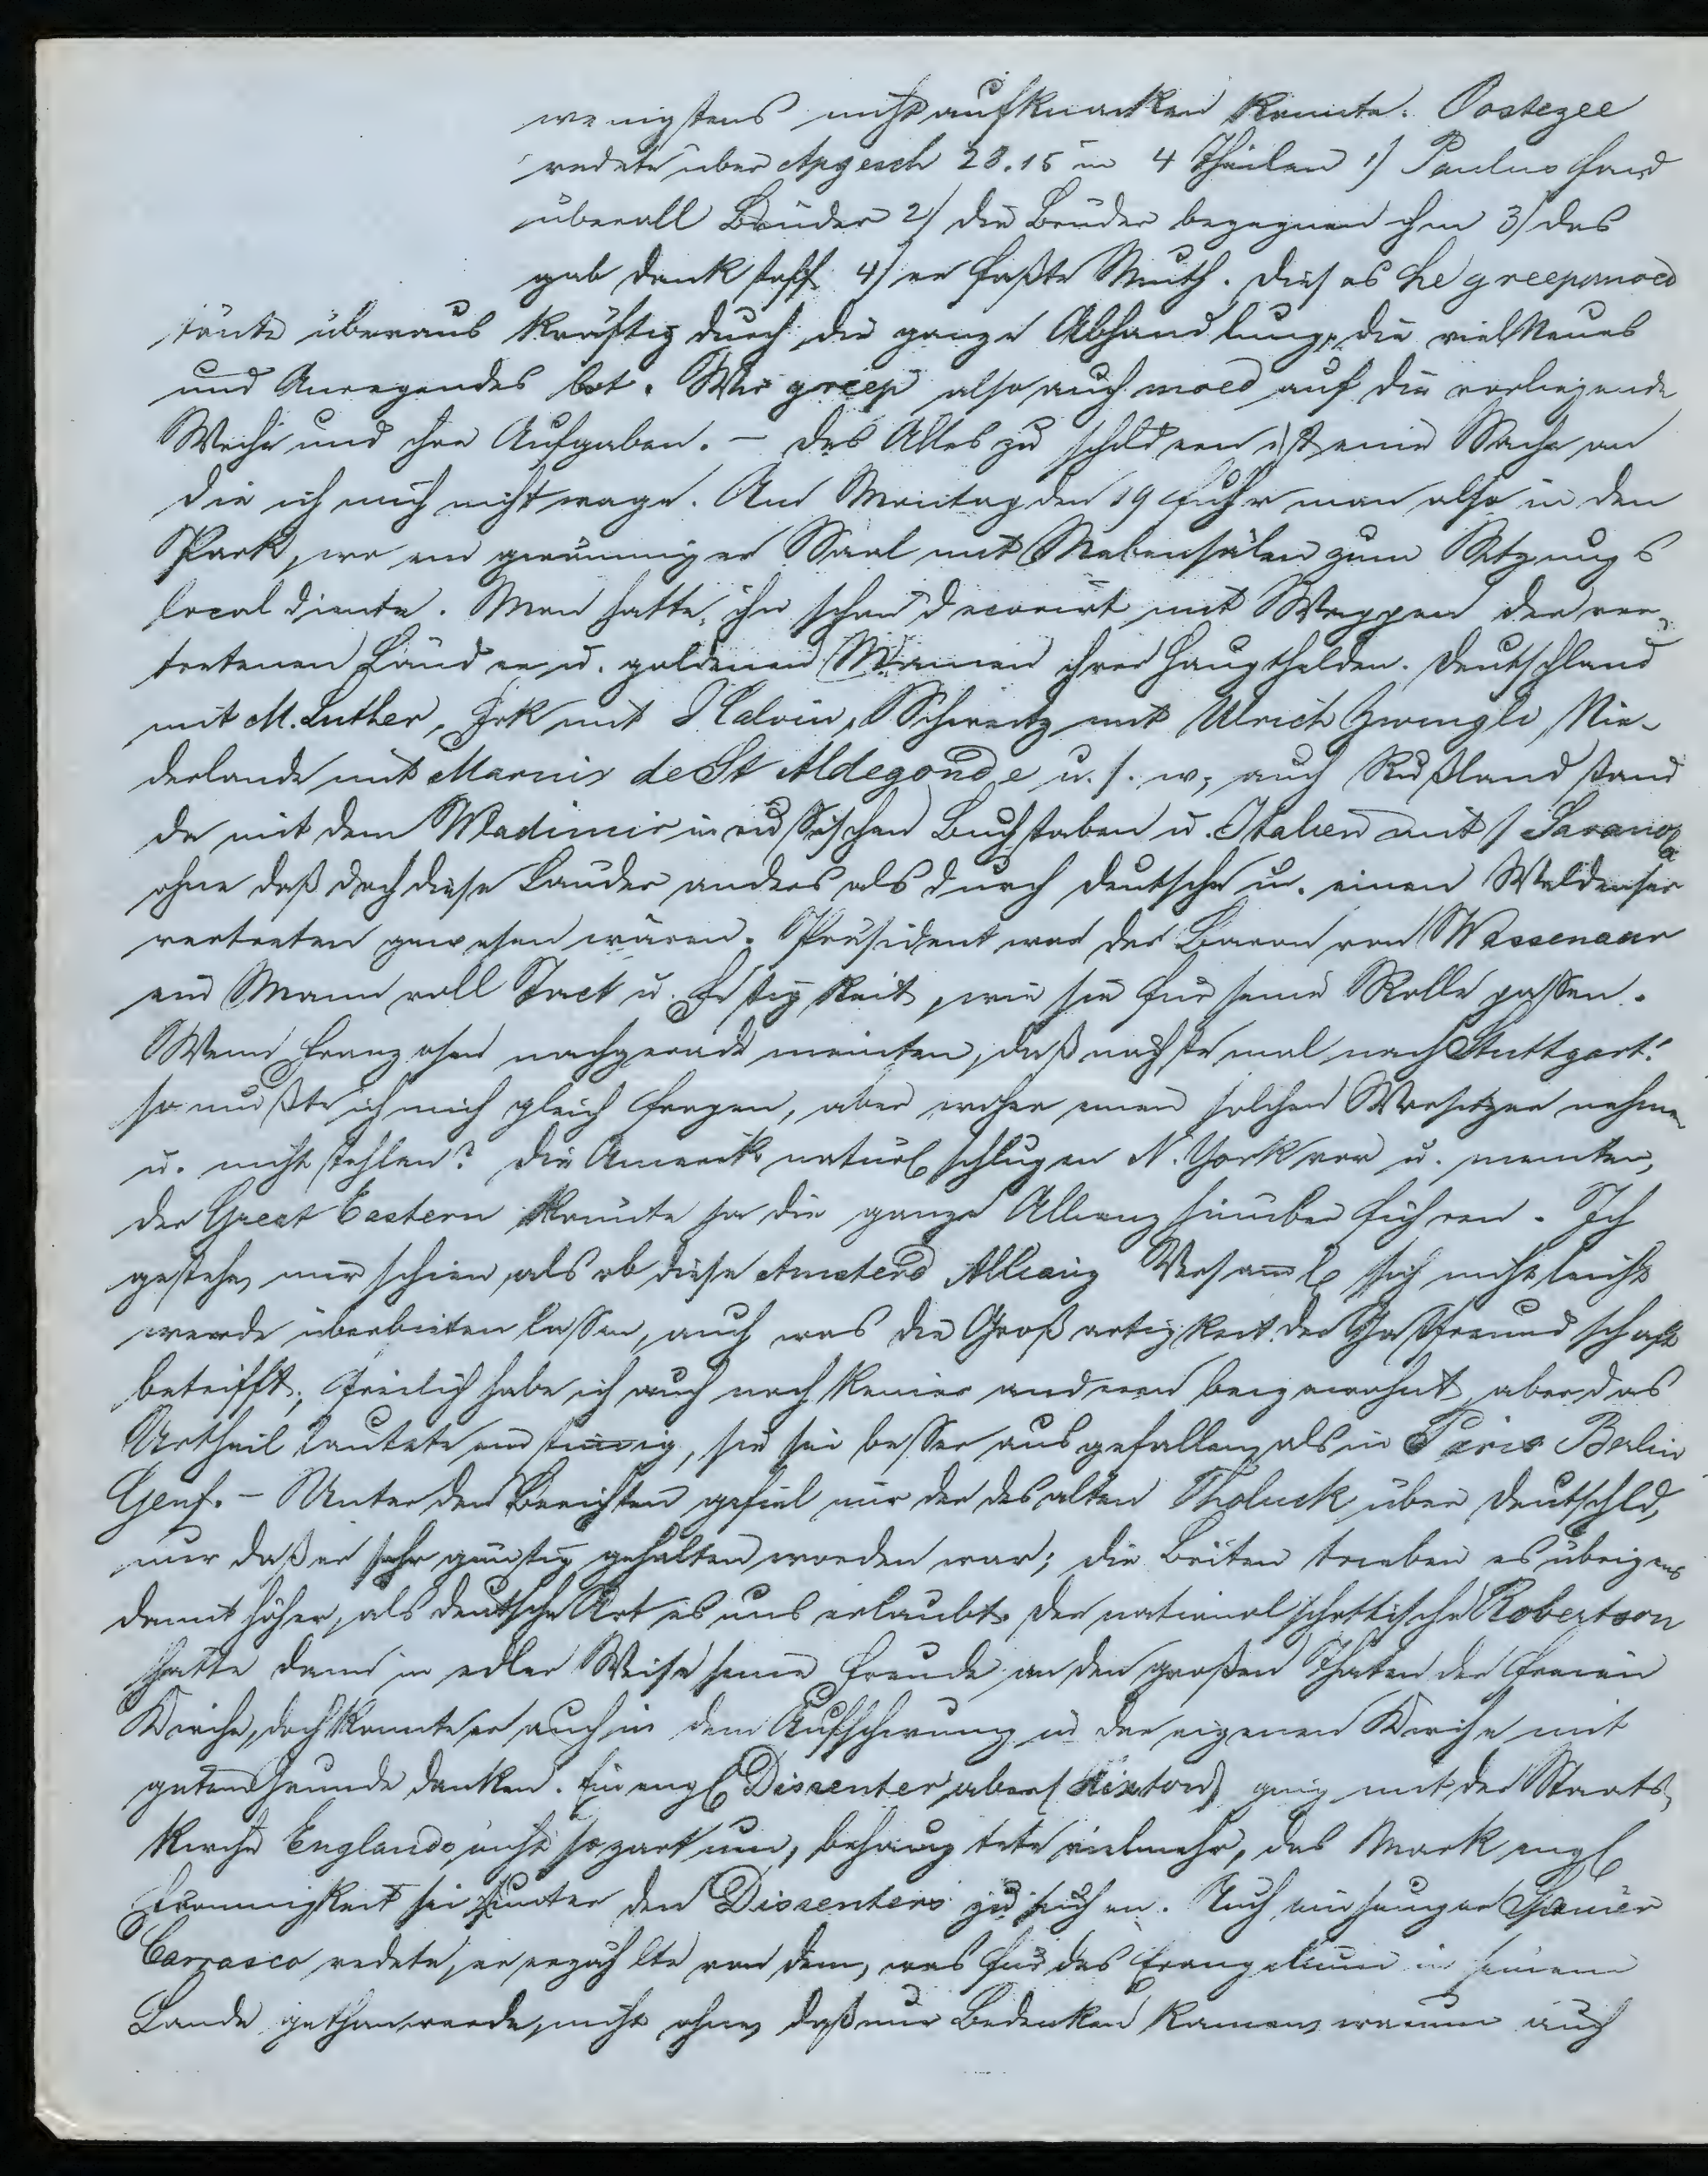 wenigstens nicht aufknacken konnte. Oostezee
redete über Apgesch 28.15 in 4 Theilen 1) Paulus fand
überall Brüder 2) die Brüder begegnen ihm 3) das
gab Dankstoff 4) er faßte Muth. Dieses he greep moed
tönte überaus kräftig durch die ganze Abhandlung, die viel Neues
und Anregendes bot. Wir greep also auch moed auf die vorliegende
Woche und ihre Aufgaben. – Das Alles zu schildern ist eine Sache an
die ich mich nicht wage. Am Montag den 19 fuhr man also in den
Park, wo ein geräumiger Saal mit Nebensälen zum Sitzungs
local diente. Man hatte ihn schön decorirt mit Wappen der ver-
tretenen Länder u. goldenen Namen ihrer Haupthelden. Deutschland
mit M. Luther, Frk mit J Calvin, Schweitz mit Ulrich Zwingli, Nie-
derlande mit Marnix de St Aldegonde u. s. w; auch Rußland stand
da mit dem Wladimir in russischen Buchstaben u. Italien mit Savanola
ohne daß doch diese Länder anders als durch Deutsche u. einen Waldenser
vertreten gewesen wären. Präsident war der Baron von Wassenaar
ein Mann voll Tact u. Festigkeit, wie sie für seine Rolle passen.
Wenn Franzosen nachgerade meinten, das nächste mal nach Stuttgart!
so mußte ich mich gleich fragen, aber woher einen solchen Vorsitzer nehmen
u. nicht stehlen? Die Amerik. natürl schlugen N. York vor u. meinten,
der Great Eastern könnte ja die ganze Allianz hinüber führen. Ich
gestehe, mir schien, als ob diese Amsterd Allianz Versamml sich nicht leicht
werde überbieten lassen, auch was die Großartigkeit der Gastfreundschaft
betrifft; freilich habe ich auch noch keiner anderen beigewohnt, aber das
Urtheil lautete einstimmig, sie sei besser ausgefallen, als in Paris Berlin
Genf. – Unter den Berichten gefiel mir der des alten Tholuck über Deutschld,
nur daß er sehr günstig gehalten worden war; die Briten trieben es übrigens
damit höher, als deutsche Art es uns erlaubt. Der national schottische Robertson
hatte dann in edler Weise seine Freude an den großen Thaten der freien
Kirche, doch konnte er auch in dem Aufschwung in der eigenen Kirche mit
gutem Grunde danken. Ein engl Dissenter aber (Hinton) ging mit der Staats-
kirche Englands nicht so zart um, behauptete vielmehr, das Mark engl
Frömmigkeit sei hunter den Dissenters zu suchen. Auch ein junger Spanier
Carrasco redete, er erzählte von dem, was für das Evangelium in seinem
Lande gethan werde, nicht ohne daß mir Bedenken kamen, warum auch